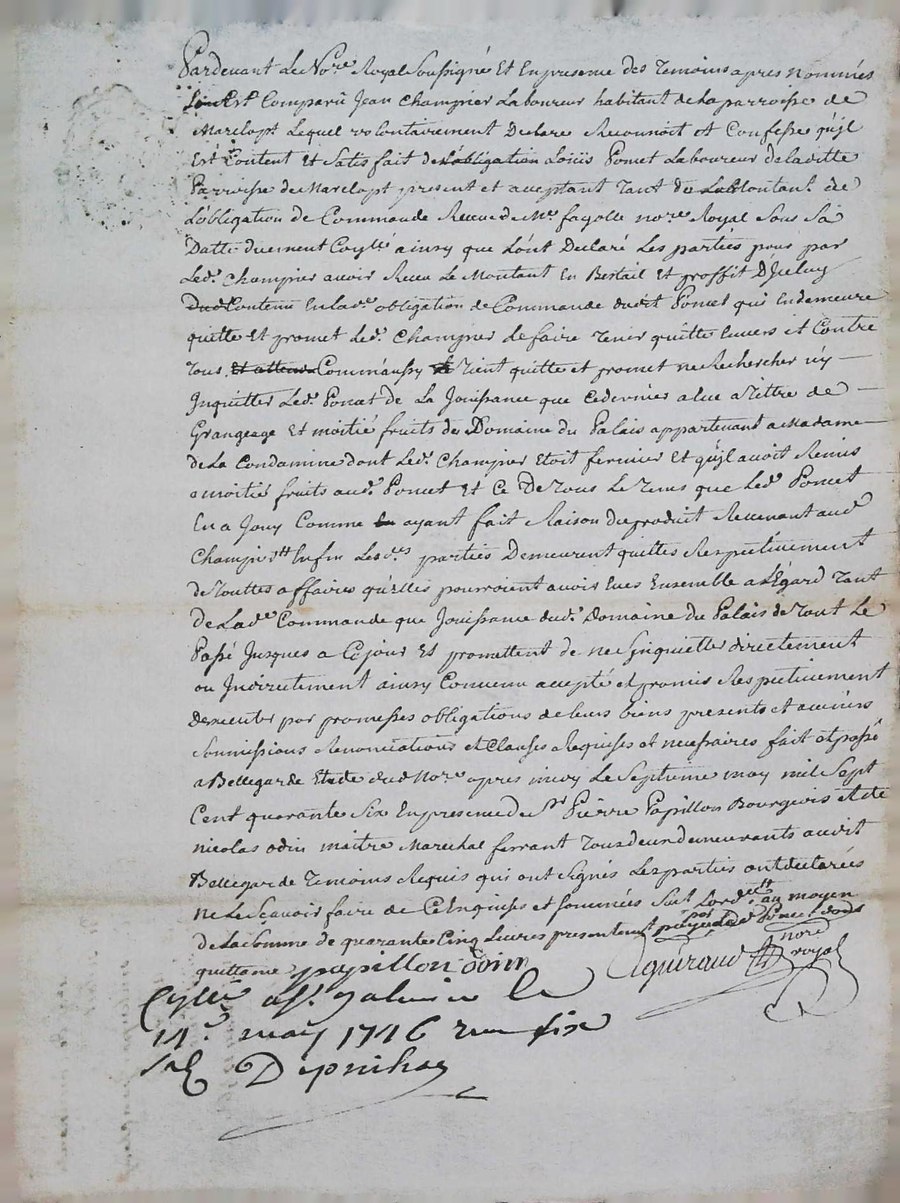 Pardevant Le Nore Royal Soussigné Et En presence des Temoins apres Nommés
Est Comparû Jean Champier Laboureur habitant de la parroisse de
Marclopt Lequel volontairement Declare Reconnoit et Confesse qu'jl
Est Content Et Satisfait de L'obligation Loüis Poncet Laboureur de la ville
Parroisse de Marclopt present et acceptant Tant du Montant de
L'obligation de Commande Receue de Me fayolle nore Royal Sous Sa
Datte duement Coyllé ainsy que L'ont Declaré Les parties pour par
Led. Champier avoir Receu Le Montant En Bestail Et proffit D'jceluy
Contenu En La de obligation de Commande dudit Poncet qui En demeure
quitte Et promet Led. Champier de faire Tenir quitte Envers et Contre
Tous Comm'aussy Tient quitte et promet ne Rechercher n'y
Jnquietter Led. Poncet de La Jouissance que ce dernier a eue a Tittre de
Grangeage Et moitié fruits du Domaine du Palais appartenant a Madame
de La Condamine dont Led. Champier Etoit fermier Et qu'jl avoit Remis
a moitié fruits aud. Poncet Et Ce De Tous Le Tems que Led Poncet
En a Jouy Comme ayant fait Raison du produit Revenant aud
Champier Enfin Les des parties Demeurent quittes Respectivement
de Touttes affaires qu'elles pourroient avoir Eues Ensemble a L'Egard Tant
de La de Commande que Jouissance dud. Domaine du Palais de Tout Le
Passé Jusques a Ce jour Et promettent de ne S'jnquietter directement
ou Jndirectement ainsy Convenu accepté et promis Respectivement
D'executer par promesses obligations de leurs biens presents et avenirs
Soumissions Renonciations et Clauses Requises et necessaires fait et passé
a Bellegarde Etude dud Nore apres midy Le Septieme may mil Sept
Cent quarante Six En presence de Sr Pierre Papillon Bourgeois et de
nicolas odin maitre Marechal ferrant Tous deux demeurants audit
Bellegarde Temoins Requis qui ont Signés Les parties ont declarées
ne Le Scavoir faire de Ce Enquises et Sommées au moyen
de La Somme de quarante Cinq Livres presentement payée Poncet dont
quittance papillon odin Eguiraud nore royal
le
11e may 1746 six